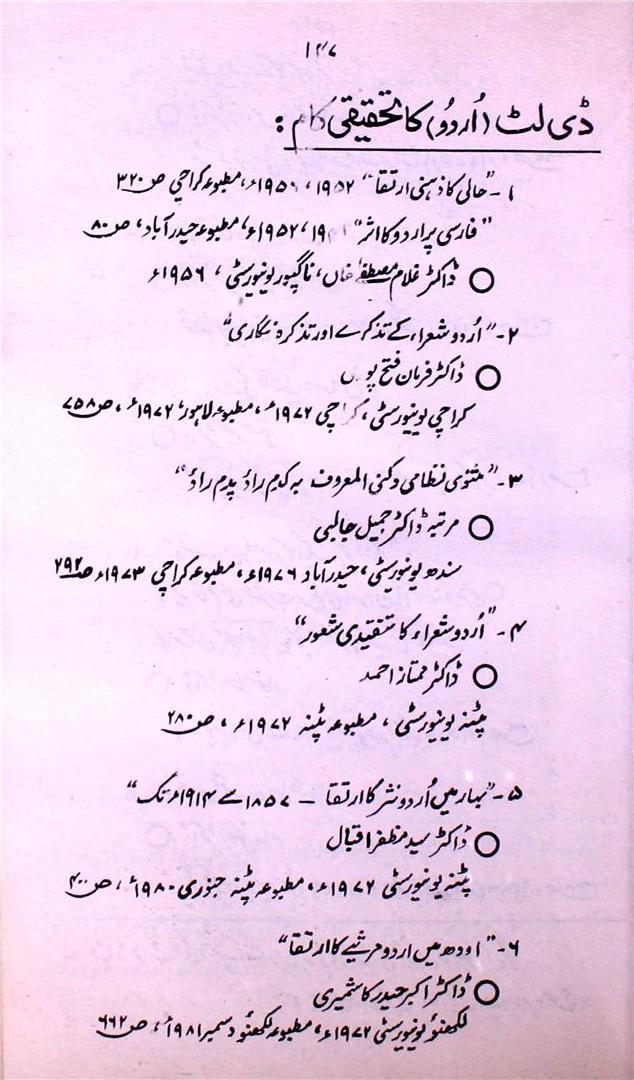 ۱۴۷
ڈی لٹ (اُردُو) کا تحقیقی کام :
۱۔ "حالی کا ذہنی ارتقا" ۱۹۵۲، ۱۹۵۶ء، مطبوعہ کراچی ص ۳۲۰
"فارسی پر اردو کا اثر" ۱۹۵۲ء، مطبوعہ حیدرآباد، ص ۸۰
○ ڈاکٹر غلام مصطفےٰ خاں، ناگپور یونیورسٹی، ۱۹۵۶ء
۲۔ "اُردو شعراء کے تذکرے اور تذکرہ نگاری"
○ ڈاکٹر فرمان فتح پوری
کراچی یونیورسٹی، کراچی ۱۹۷۲ء، مطبوعہ لاہور ۱۹۷۲ء، ص ۷۵۸
۳۔ "مثنوی نظامی دکنی المعروف بہ کدم راؤ پدم راؤ"
○ مرتبہ ڈاکٹر جمیل جالبی
سندھ یونیورسٹی، حیدرآباد ۱۹۷۶ء، مطبوعہ کراچی ۱۹۷۳ء ص ۲۹۲
۴۔ "اُردو شعراء کا تنقیدی شعور"
○ ڈاکٹر ممتاز احمد
پٹنہ یونیورسٹی، مطبوعہ پٹنہ ۱۹۷۲ء، ص ۲۸۰
۵۔ "بہار میں اُردو نثر کا ارتقا – ۱۸۵۷ سے ۱۹۱۴ء تک"
○ ڈاکٹر سید مظفر اقبال
پٹنہ یونیورسٹی ۱۹۷۲ء، مطبوعہ پٹنہ جنوری ۱۹۸۰ء، ص ۴۰۰
۶۔ "اودھ میں اردو مرثیے کا ارتقا"
○ ڈاکٹر اکبر حیدر کاشمیری
لکھنؤ یونیورسٹی ۱۹۷۲ء، مطبوعہ لکھنؤ دسمبر ۱۹۸۱ء، ص ۶۶۲